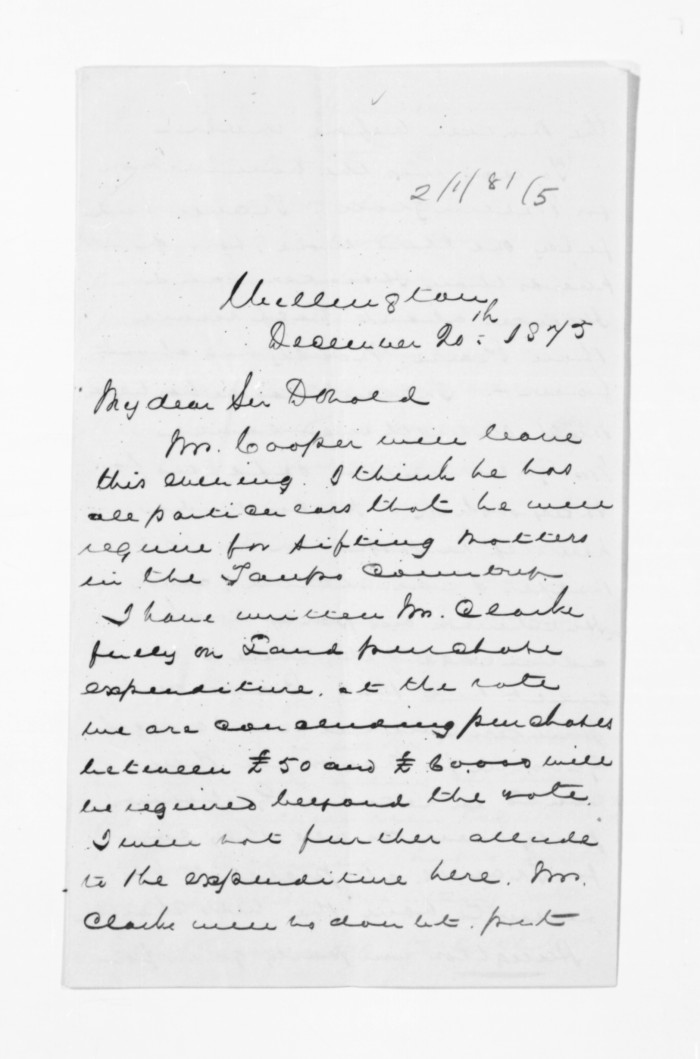 2/1/81/5
Wellington
December 20th 1875
My dear Sir Donald
Mr. Cooper will leave
this evening. I think he has
all particulars that he will
require for sifting matters
in the Taupo Country.
I have written Mr. Clarke
fully on Land purchase
expenditure. at the rate
we are concluding purchases
between £50 and £60.000 will
be required beyond the vote.
I will not further allude
to the expenditure here. Mr.
Clarke will no doubt put